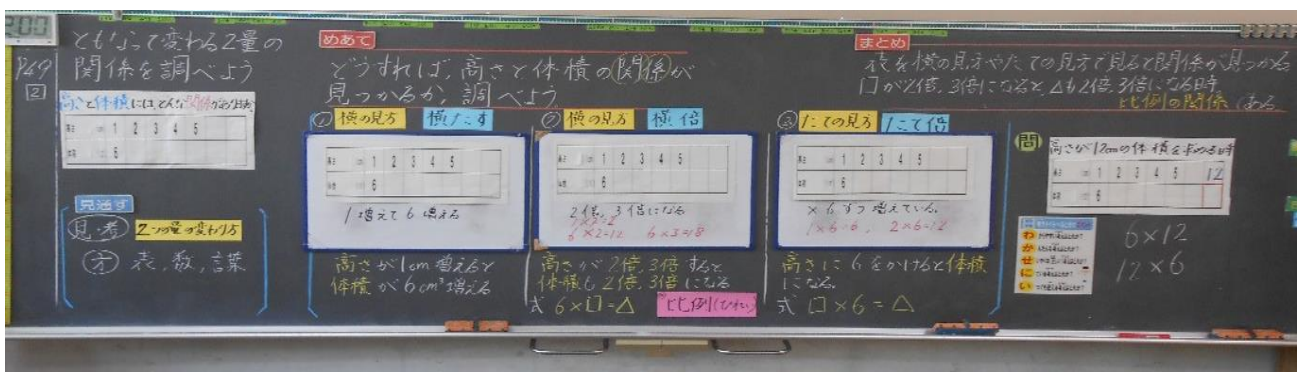 ともなって変わる2量の
P49 関係を調べよう
2
高さと体積には、どんな関係が
1 2 3 4 5
6
見通す
見・考 2つの量の変わり方
方 表,数,言葉
めあて
どうすれば,高さと体積の関係が
見つかるか,調べよう
① 横の見方 横たす
高さ 1 2 3 4 5
体積 6
1増えて6増える
高さが1cm増えると
体積が6cm³増える
② 横の見方 横倍
高さ 1 2 3 4 5
体積 6
2倍,3倍になる
6×2=12 6×3=18
高さが2倍,3倍すると
体積も2倍,3倍になる
式 6×□=△ 比例(ひれい)
③ たての見方 たて倍
高さ 1 2 3 4 5
体積 6
×6ずつ増えている。
1×6=6, 2×6=12
高さに6をかけると体積
になる。
式 □×6=△
まとめ
表を横の見方やたての見方で見ると関係が見つかる。
□が2倍,3倍になると,△も2倍,3倍になる時
比例の関係 ある
問
高さが12cmの体積を求める時
1 2 3 4 5 12
6
わ
か
せ
に
い
6×12
12×6